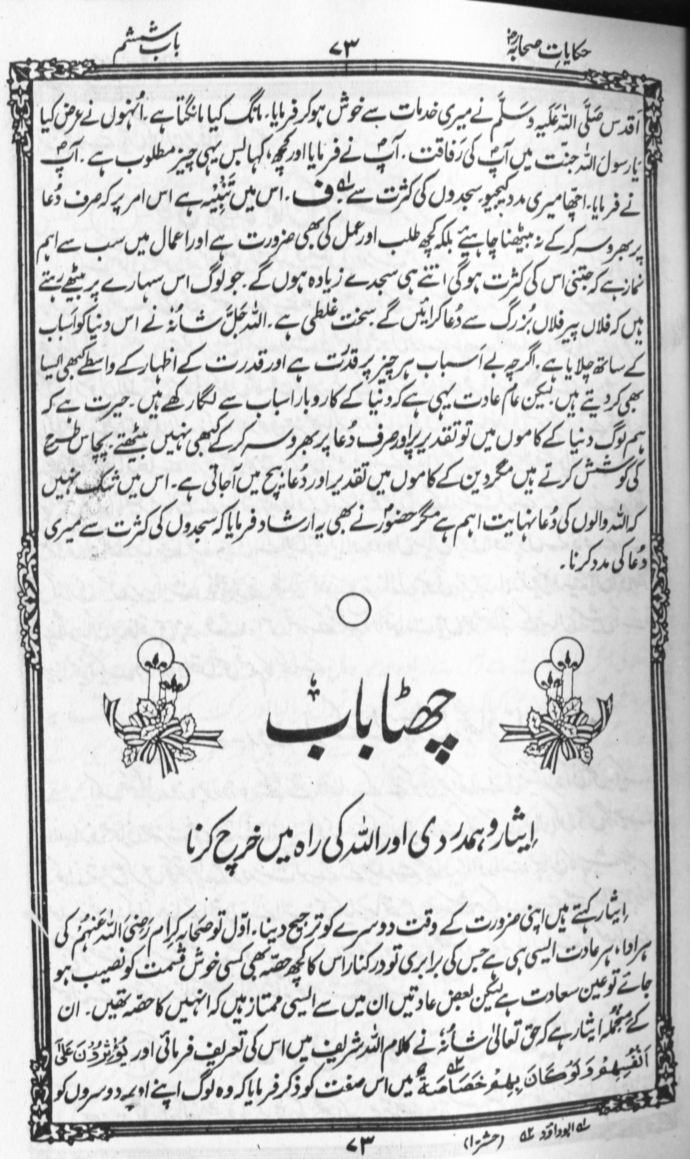 حکایات صحابہؓ ۷۳ باب ششم
اقدس صَلَّی اللہُ عَلَیْہِ وَسَلَّم نے میری خدمات سے خوش ہو کر فرمایا۔ مانگ کیا مانگتا ہے۔ اُنہوں نے عرض کیا
یا رسول اللہ جنّت میں آپ کی رفاقت۔ آپؐ نے فرمایا اور کچھ، کہا بس یہی چیز مطلوب ہے۔ آپؐ
نے فرمایا۔ اچھا میری مدد کیجیو سجدوں کی کثرت سے لہ ف۔ اس میں تنبیہ ہے اس امر پر کہ صرف دُعا
پر بھروسہ کر کے نہ بیٹھنا چاہئیے بلکہ کچھ طلب اور عمل کی بھی ضرورت ہے اور اعمال میں سب سے اہم
نماز ہے کہ جتنی اس کی کثرت ہوگی اتنے ہی سجدے زیادہ ہوں گے۔ جو لوگ اس سہارے پر بیٹھے رہتے
ہیں کہ فلاں پیر فلاں بزرگ سے دُعا کرائیں گے سخت غلطی ہے۔ اللہ جَلَّ شانُہٗ نے اس دنیا کو اسباب
کے ساتھ چلایا ہے اگرچہ بے اسباب ہر چیز پر قدرت ہے اور قدرت کے اظہار کے واسطے کبھی ایسا
بھی کر دیتے ہیں لیکن عام عادت یہی ہے کہ دنیا کے کاروبار اسباب سے لگا رکھے ہیں۔ حیرت ہے کہ
ہم لوگ دنیا کے کاموں میں تو تقدیر پر اور صرف دعا پر بھروسہ کر کے کبھی نہیں بیٹھتے۔ پچاس طرح
کی کوشش کرتے ہیں مگر دین کے کاموں میں تقدیر اور دُعا بیچ میں آجاتی ہے۔ اس میں شک نہیں
کہ اللہ والوں کی دُعا نہایت اہم ہے مگر حضورؐ نے بھی یہ ارشاد فرمایا کہ سجدوں کی کثرت سے میری
دُعا کی مدد کرنا۔
چھٹا باب
ایثار و ہمدردی اور اللہ کی راہ میں خرچ کرنا
ایثار کہتے ہیں اپنی ضرورت کے وقت دوسرے کو ترجیح دینا۔ اوّل تو صحابہ کرام رَضِیَ اللہُ عَنْہُمْ کی
ہر ادا، ہر عادت ایسی ہی ہے جس کی برابری تو درکنار اس کا کچھ حصّہ بھی کسی خوش قسمت کو نصیب ہو
جائے تو عین سعادت ہے لیکن بعض عادتیں ان میں سے ایسی ممتاز ہیں کہ انہیں کا حصّہ تھیں۔ ان
کے مِنجملہ ایثار ہے کہ حق تعالٰی شانُہٗ نے کلام اللہ شریف میں اس کی تعریف فرمائی اور یُؤْثِرُوْنَ عَلٰٓی
اَنْفُسِہِمْ وَلَوْ کَانَ بِہِمْ خَصَاصَۃٌ میں اس صفت کو ذکر فرمایا کہ وہ لوگ اپنے اوپر دوسروں کو
لہ ابوداؤد لہ (حشر-۱)
۷۳